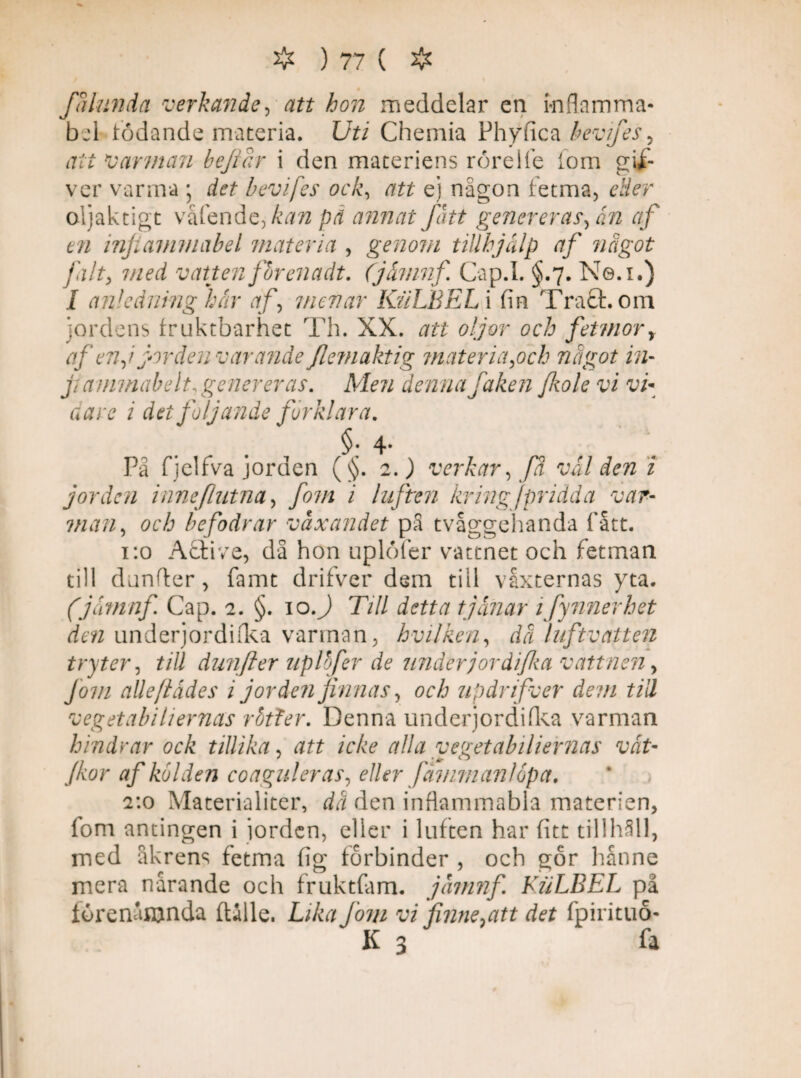 ☆ ) 77 ( ☆
ſålunda verkande, att hon meddelar en inflamma-
bel födande materia. Uti Chemia Phyſica beviſes,
att varman beſtår i den materiens rörelſe ſom gif-
ver varma ; det beviſes ock, att ej någon fetma, eller
oljaktigt väſende, kan på annat ſätt genereras, än af
en inflammabel materia , genom tillhjälp af något
ſalt, med vatten förenadt. (jämnf. Cap.I. §.7. No.1.)
I anledning här af, menar KüLBEL i ſin Tract. om
jordens fruktbarhet Th. XX. att oljor och fetmor,
af en, i jorden varande ſlemaktig materia, och något in-
flammabelt, genereras. Men denna ſaken ſkole vi vi-
dare i det följande förklara.
§. 4.
På ſjelfva jorden (§. 2.) verkar, ſå väl den i
jorden inneſlutna, ſom i luften kringſpridda var-
man, och befodrar växandet på tväggehanda ſätt.
1:o Active, då hon uplöſer vattnet och fetman
till dunſter, ſamt drifver dem till växternas yta.
(jämnf. Cap. 2. §. 10.) Till detta tjänar i ſynnerhet
den underjordiſka varman, hvilken, då luftvatten
tryter, till dunſter uplöſer de underjordiſka vattnen,
ſom alleſtädes i jorden finnas, och updrifver dem till
vegetabiliernas rötter. Denna underjordiſka varman
hindrar ock tillika, att icke alla vegetabiliernas vät-
ſkor af kölden coaguleras, eller ſammanlöpa.
2:o Materialiter, då den inflammabla materien,
ſom antingen i jorden, eller i luften har ſitt tillhåll,
med åkrens fetma ſig förbinder , och gör hänne
mera närande och fruktſam. jämnf. KüLBEL på
förenämnda ſtälle. Lika ſom vi finne, att det ſpirituö-
K 3 ſa